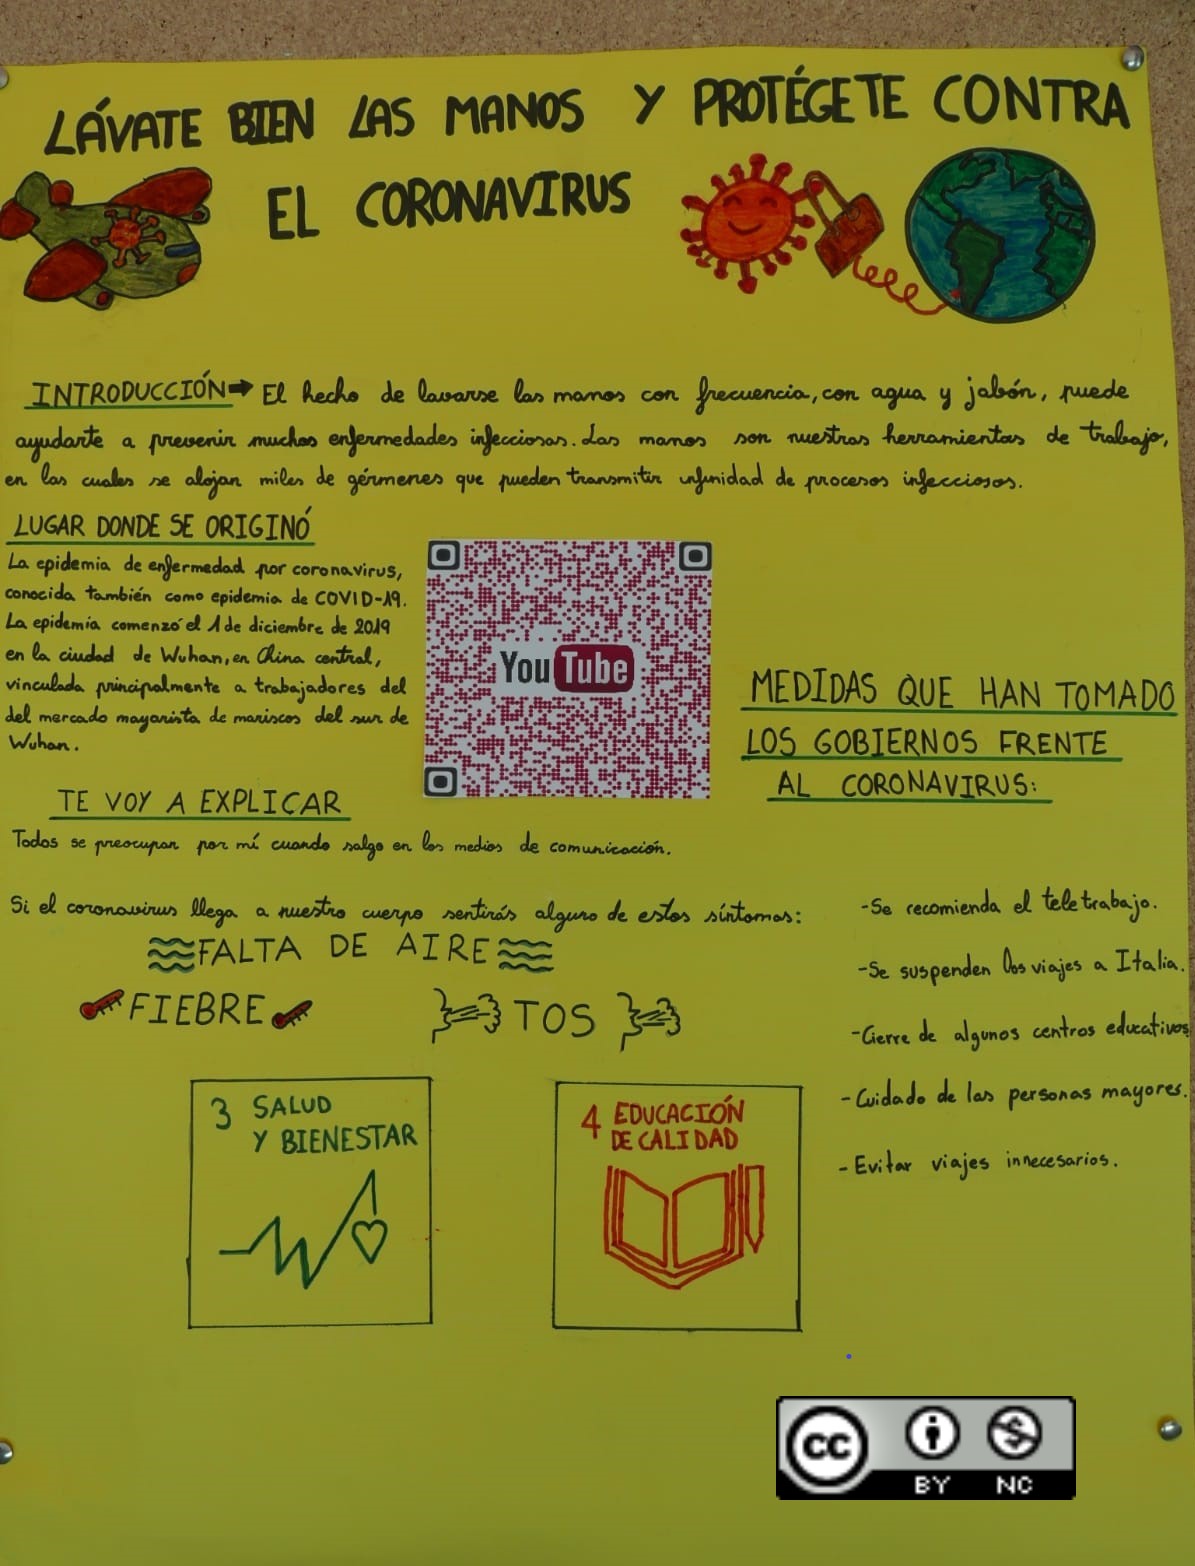 LÁVATE BIEN LAS MANOS Y PROTÉGETE CONTRA
EL CORONAVIRUS
INTRODUCCIÓN➡ El hecho de lavarse las manos con frecuencia, con agua y jabón, puede
ayudarte a prevenir muchas enfermedades infecciosas. Las manos son nuestras herramientas de trabajo,
en las cuales se alojan miles de gérmenes que pueden transmitir infinidad de procesos infecciosos.
LUGAR DONDE SE ORIGINÓ
La epidemia de enfermedad por coronavirus,
conocida también como epidemia de COVID-19.
La epidemia comenzó el 1 de diciembre de 2019
en la ciudad de Wuhan, en China central,
vinculada principalmente a trabajadores del
del mercado mayorista de mariscos del sur de
Wuhan.
YouTube
TE VOY A EXPLICAR
Todos se preocupan por mí cuando salgo en los medios de comunicación.
Si el coronavirus llega a nuestro cuerpo sentirás alguno de estos síntomas:
FALTA DE AIRE
FIEBRE
TOS
MEDIDAS QUE HAN TOMADO
LOS GOBIERNOS FRENTE
AL CORONAVIRUS:
-Se recomienda el teletrabajo.
-Se suspenden los viajes a Italia.
-Cierre de algunos centros educativos.
-Cuidado de las personas mayores.
-Evitar viajes innecesarios.
3 SALUD
Y BIENESTAR
4 EDUCACIÓN
DE CALIDAD
cc
BY NC